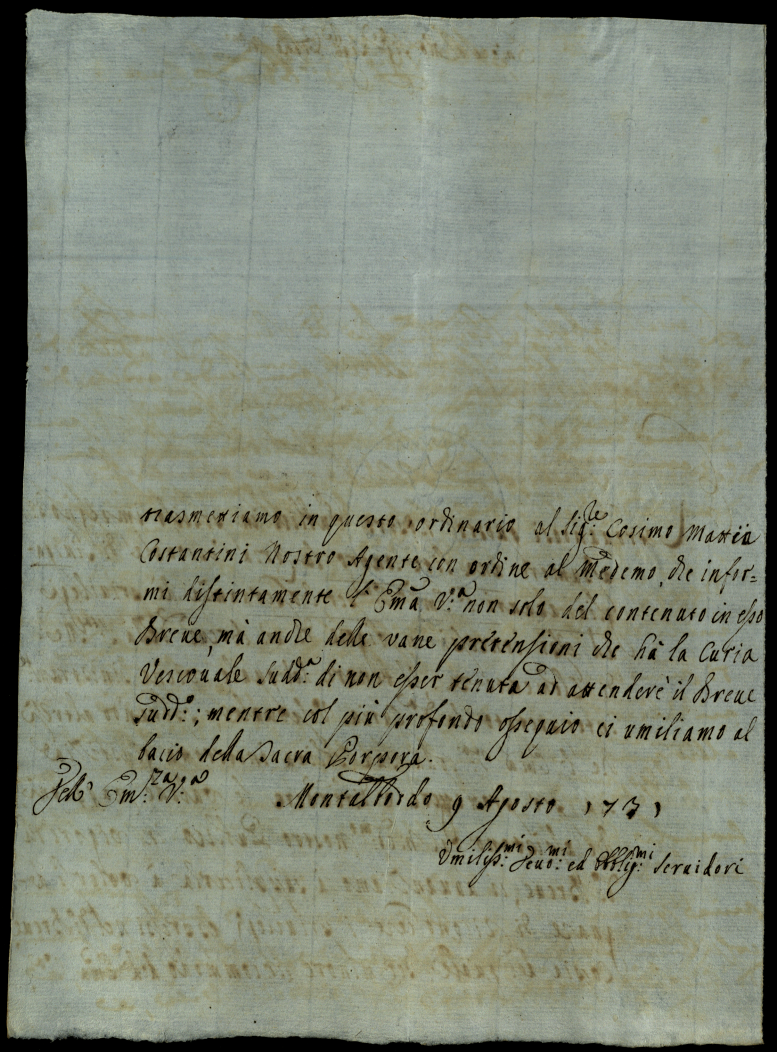 trasmettiamo in questo ordinario al Sig.re Cosimo Mattia
Costantini Nostro Agente con ordine al medemo, che infor-
mi distintamente l'Em̃a V.a non solo del contenuto in esso
Breve, mà anche delle vane pretensioni che hà la Curia
Vescovale Sudd.a di non esser tenuta ad attendere il Breve
Sudd.o; mentre col più profondo ossequio ci umiliamo al
bacio della Sacra Porpora.
Dell' Em.za V.a
Montalboddo 9 Agosto 1731
Umiliss.mi Devo.mi ed Obblig.mi Servidori